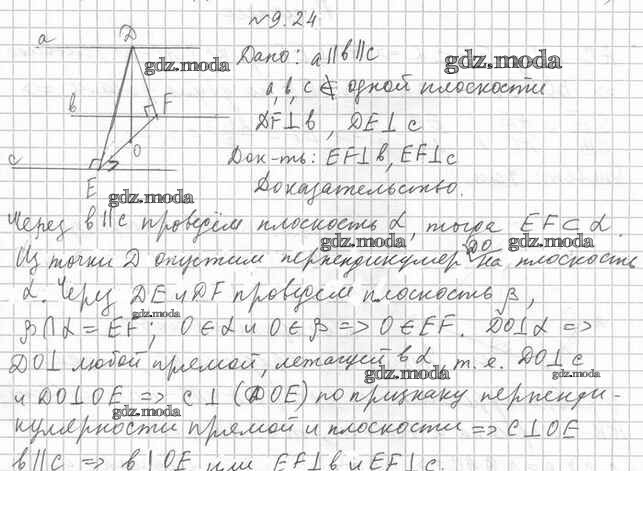 №9.24
a D
Дано: a∥b∥c
gdz.moda
gdz.moda
a, b, c ⊄ одной плоскости
b F
DF⊥b, DE⊥c
O
Док-ть: EF⊥b, EF⊥c
c
E
gdz.moda
Доказательство.
Через b∥c проведём плоскость α, тогда EF⊂α.
gdz.moda gdz.moda
Из точки D опустим перпендикуляр DO на плоскость
α. Через DE и DF проведём плоскость β,
gdz.moda
β∩α = EF; O∈α и O∈β => O∈EF. DO⊥α =>
DO⊥ любой прямой, лежащей в α, т.е. DO⊥c
gdz.moda gdz.moda
и DO⊥OE => c⊥(DOE) по признаку перпенди-
gdz.moda
кулярности прямой и плоскости => c⊥OE
b∥c => b⊥OE или EF⊥b и EF⊥c.